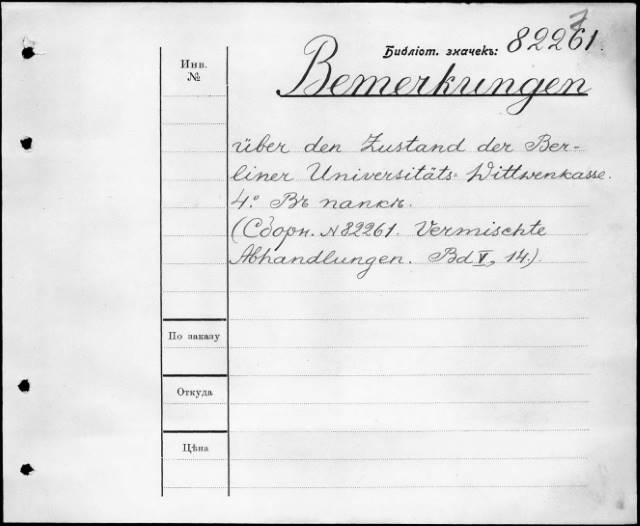 Библіот. значекъ: 82261.
7
Инв.
№
Bemerkungen
über den Zustand der Ber-
liner Universitäts-Wittwenkasse.
4.º Въ папкѣ.
(Сборн. № 82261. Vermischte
Abhandlungen. Bd V, 14.)
По заказу
Откуда
Цѣна